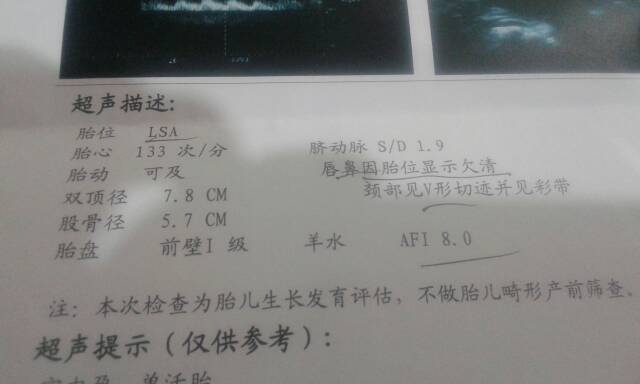 超声描述：
胎位 LSA
胎心 133 次/分 脐动脉 S/D 1.9
胎动 可及 唇鼻因胎位显示欠清
双顶径 7.8 CM 颈部见V形切迹并见彩带
股骨径 5.7 CM
胎盘 前壁I 级 羊水 AFI 8.0
注：本次检查为胎儿生长发育评估，不做胎儿畸形产前筛查。
超声提示（仅供参考）：
宫内孕 单活胎